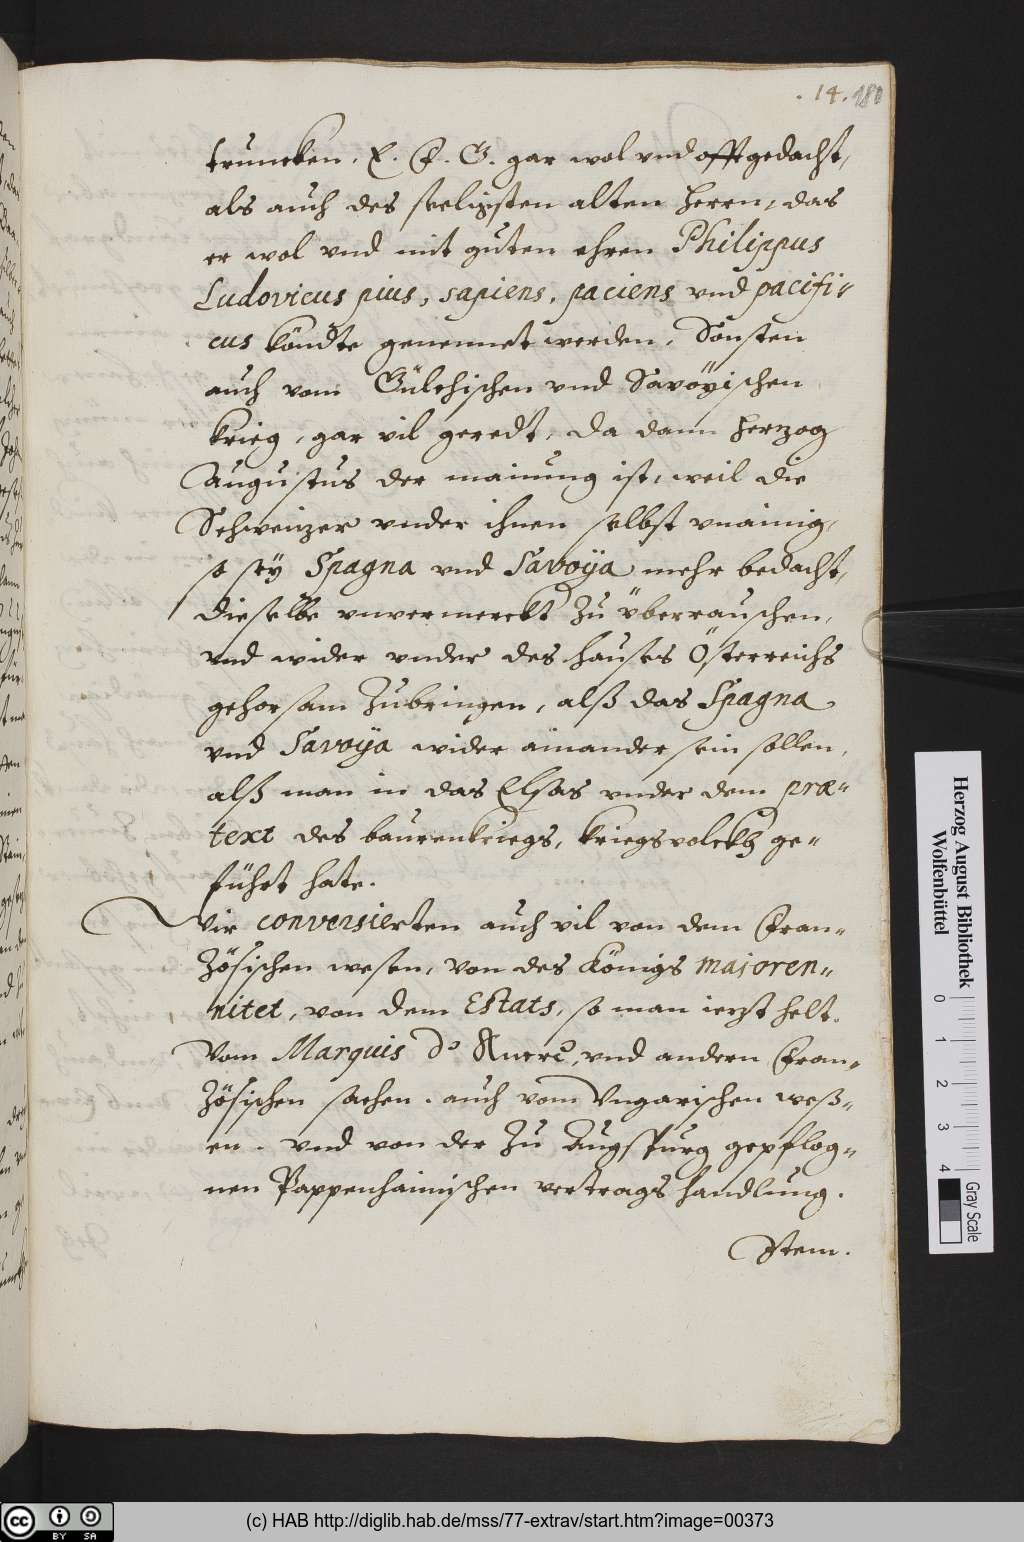 . 14. 180
truncken. E. F. G. gar wol vnd offt gedacht,
als auch des seeligsten alten Herrn, das
er wol vnd mit guten ehren Philippus
Ludovicus pius, sapiens, paciens vnd pacifi-
cus köndte genennet werden. Sonsten
auch vom Gülchischen vnd Savöyischen
krieg, gar vil geredt, da dann Hertzog
Augustus der mainung ist, weil die
Schweitzer vnder ihnen selbst vnainig,
so seÿ Spagna vnd Savoÿa mehr bedacht,
dieselbe vnvermerckt Zu überrauschen,
vnd wider vnder des hauses Österreichs
gehorsam Zubringen, alß das Spagna
vnd Savoÿa wider ainander sein sollen,
alß man in das Elsas vnder dem præ-
text des baurenkriegs, kriegsvolckh ge-
führt hate.
Wir conversierten auch vil von dem Fran-
Zösischen wesen, von des Königs majoren-
nitet, von dem Estats, so man ietzt helt.
Vom Marquis d' Ancre, vnd andern Fran-
Zösischen sachen. auch vom Vngarischen weß-
en. vnd von der Zu Augspurg gepflog-
nen Pappenhaimischen vertrags handlung.
Item.
Herzog August Bibliothek
Wolfenbüttel
0 1 2 3 4
Gray Scale
cc BY SA
(c) HAB http://diglib.hab.de/mss/77-extrav/start.htm?image=00373